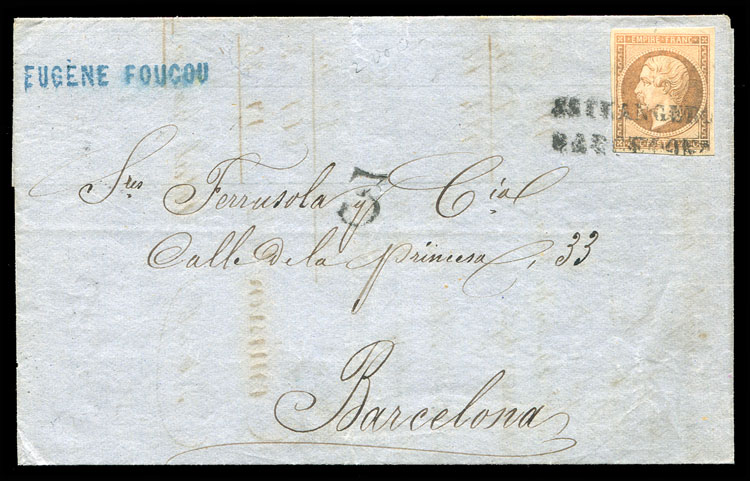 EUGÈNE FOUCOU
EMPIRE FRANC
ESTRANGERO
BARCELONA
Sres Ferrusola y Cia
Calle de la princesa, 33
Barcelona